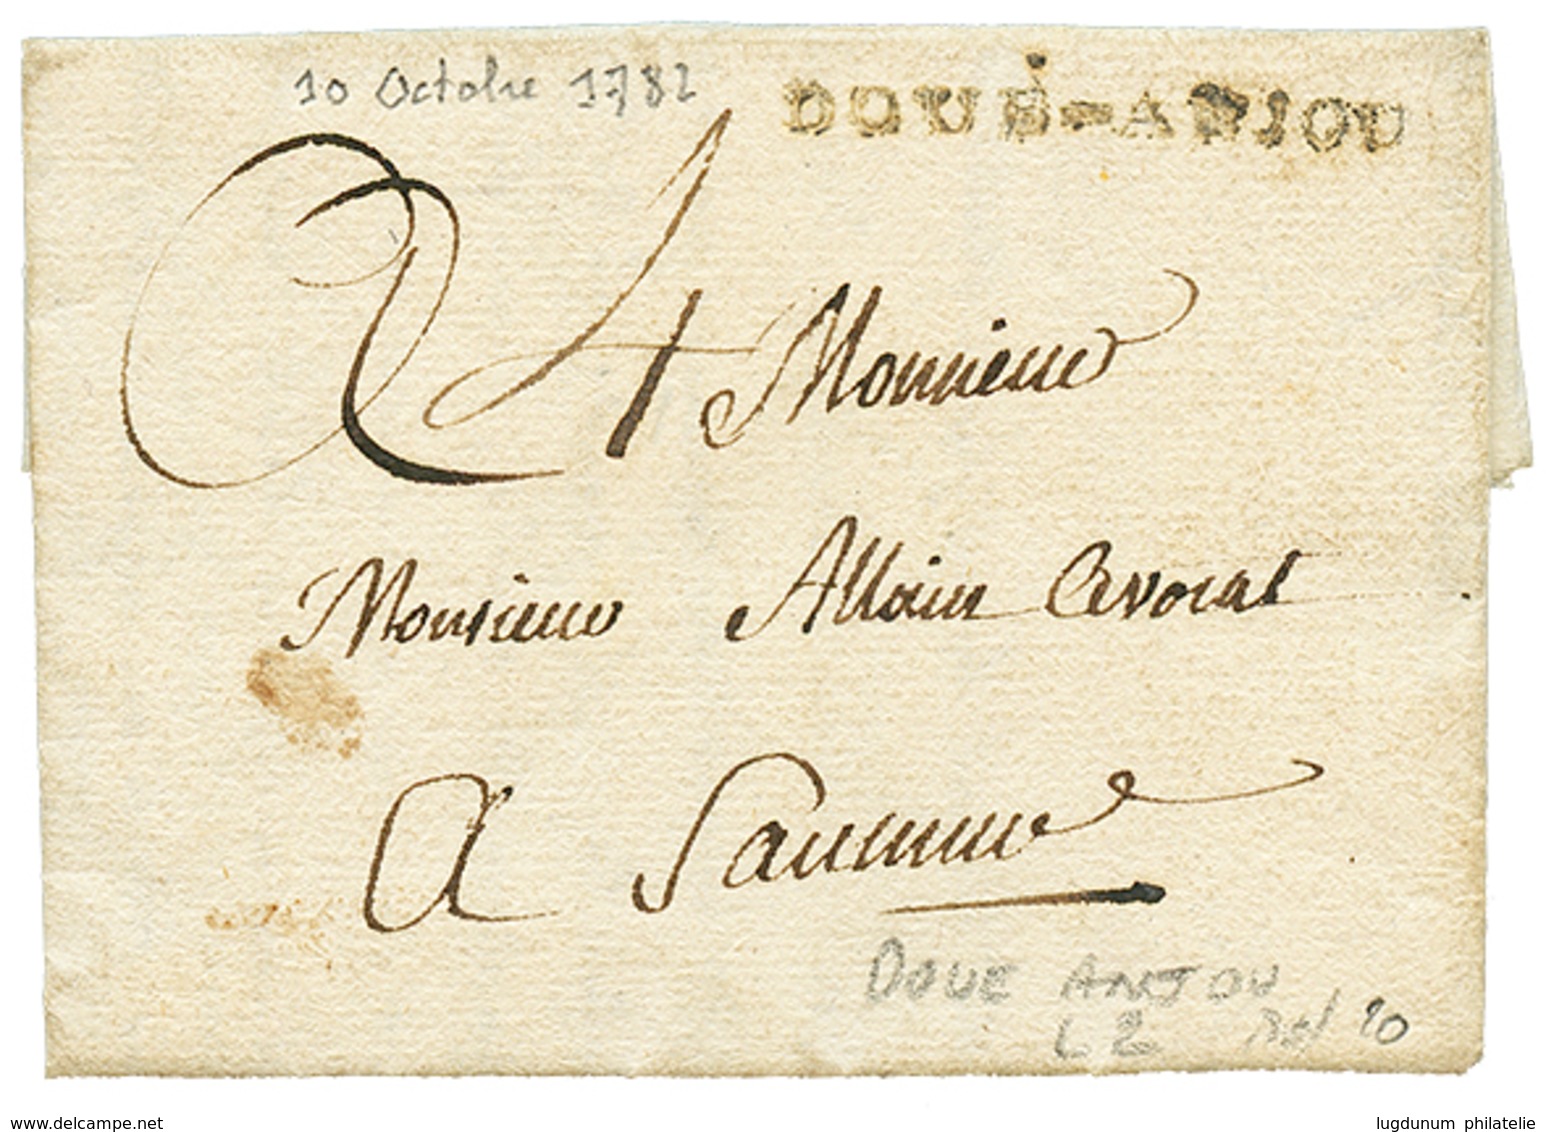 10 Octobre 1782
DOUÉ-ANJOU
4 Monsieur
Monsieur Allain Avocat
A Saumur
DOUE ANJOU
L 2
10
www.delcampe.net
lugdunum philatelie